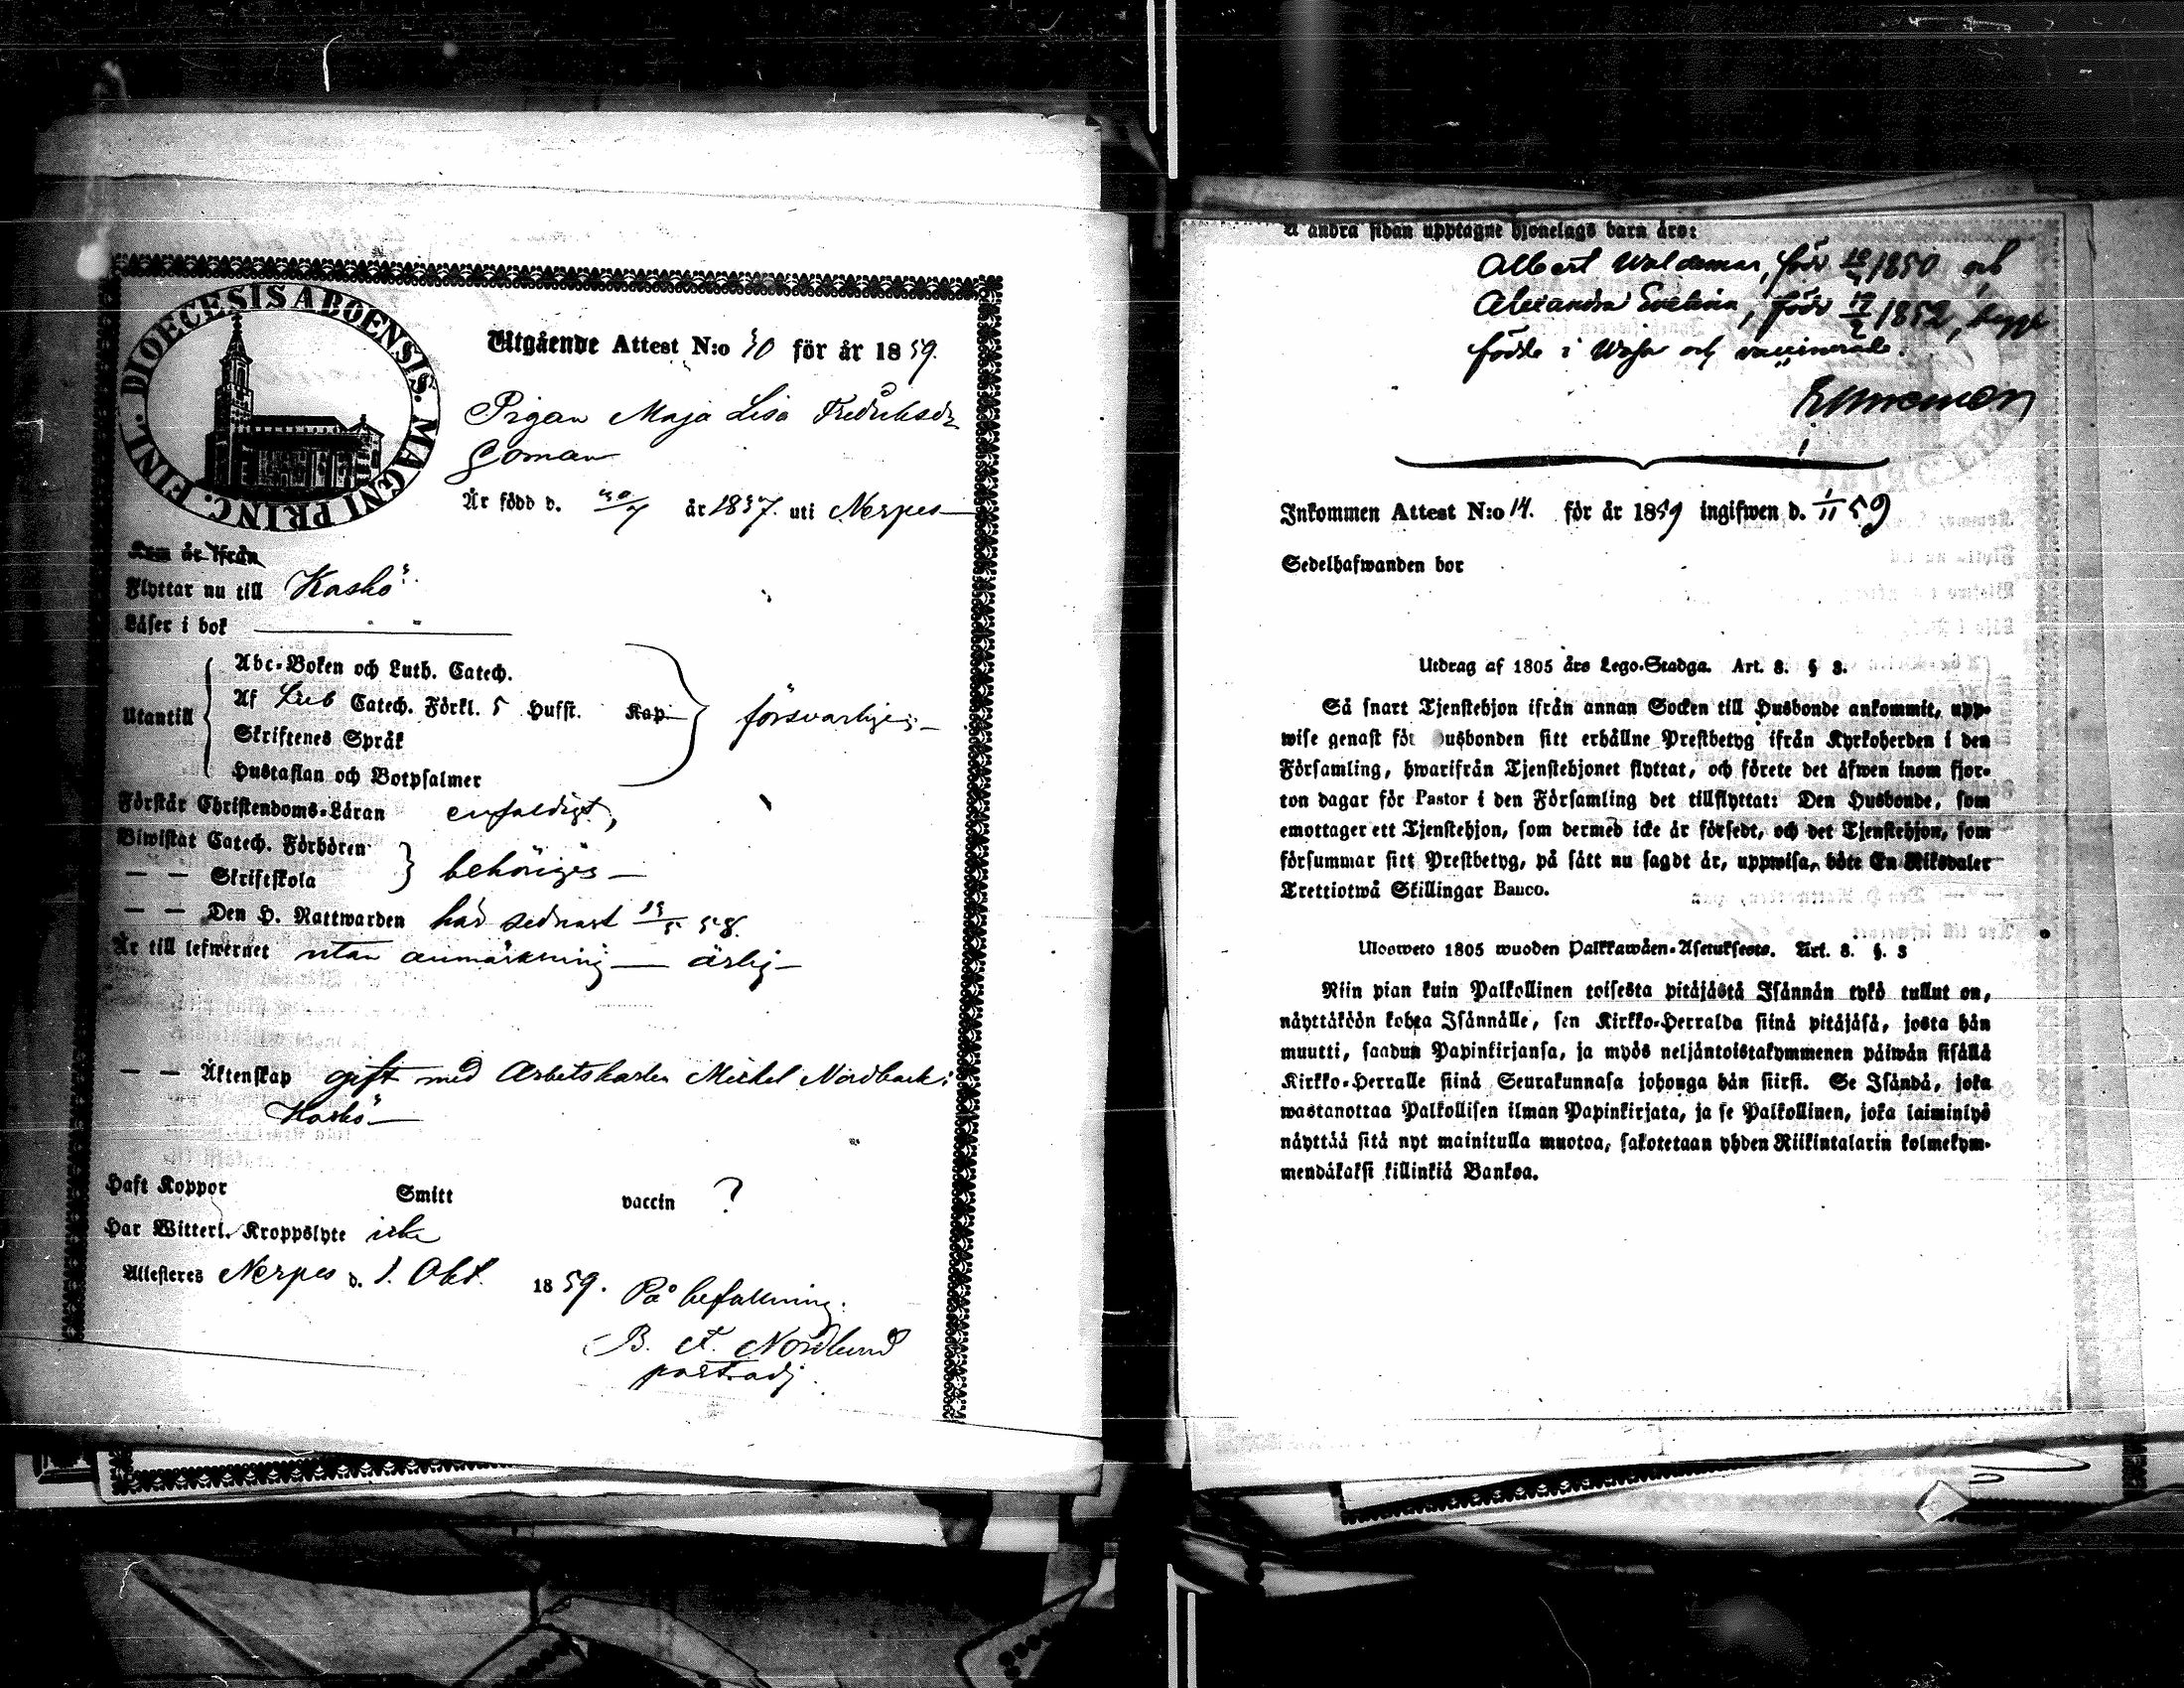 DIOECESIS ABOENSIS. MAGNI PRINC. FINL.
Utgående Attest N:o 30 för år 1859.
Pigan Maja Lisa Fredriksdr
Goman
Är född d. år 1837. uti Nerpes
Kom år ifrån
Flyttar nu till Kaskö
Läser i bok
Utantill
Abc-Boken och Luth. Catech.
Af Lieb Catech. Förkl. 5 Hufst. Kap.
Skriftenes Språk
Hustaflan och Botpsalmer
försvarligen
Förstår Christendoms-Läran enfaldigt,
Biwistat Catech. Förhören
— — Skriftskola
behörigen —
— — Den H. Nattwarden här sednast 58.
Är till lefwernet utan anmärkning — ärlig —
— — Äktenskap gift med Arbetskarlen Michel Nordback i
Kaskö —
Haft Koppor Smitt vaccin ?
Har Witterl. Kroppslyte icke
Attesteres Nerpes d. 1. Okt. 1859. På befallning.
B. F. Nordlund
past. adj.
å andra sidan upptagne hjonelags barn äro:
Albert Waldemar, född 1850 och
Alexandra Evelina, född 19/2 1852, begge
födde i Wasa och vaccinerade.
Inkommen Attest N:o 14. för år 1859 ingifwen d. 1/11 59
Sedelhafwanden bor
Utdrag af 1805 års Lego-Stadga. Art. 8. § 3.
Så snart Tjenstehjon ifrån annan Socken till Husbonde ankommit, upp-
wise genast för Husbonden sitt erhållne Prestbetyg ifrån Kyrkoherden i den
Församling, hwarifrån Tjenstehjonet flyttat, och förete det äfwen inom fjor-
ton dagar för Pastor i den Församling det tillflyttat: Den Husbonde, som
emottager ett Tjenstehjon, som dermed icke är försedt, och det Tjenstehjon, som
försummar sitt Prestbetyg, på sätt nu sagdt är, uppwisa, böte En Riksdaler
Trettiotwå Skillingar Banco.
Ulosweto 1805 wuoden Palkkawäen-Asetuksesta. Art. 8. §. 3
Niin pian kuin Palkollinen toisesta pitäjästä Isännän tykö tullut on,
näyttäköön kohta Isännälle, sen Kirkko-Herralda siinä pitäjäsä, josta hän
muutti, saadun Papinkirjansa, ja myös neljäntoistakymmenen päiwän sisällä
Kirkko-Herralle siinä Seurakunnasa johonga hän siirsi. Se Isändä, joka
wastanottaa Palkollisen ilman Papinkirjata, ja se Palkollinen, joka laiminlyö
näyttää sitä nyt mainitulla muotoa, sakotetaan yhden Riikintalarin kolmekym-
mendäkaksi killinkiä Bankoa.